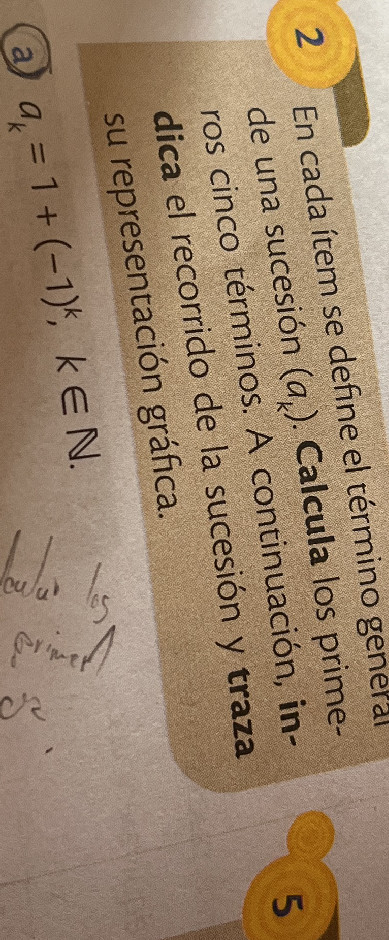 2
En cada ítem se define el término general
de una sucesión (aₖ). Calcula los prime-
ros cinco términos. A continuación, in-
dica el recorrido de la sucesión y traza
su representación gráfica.
a) aₖ = 1 + (−1)ᵏ, k ∈ ℕ.
los
5